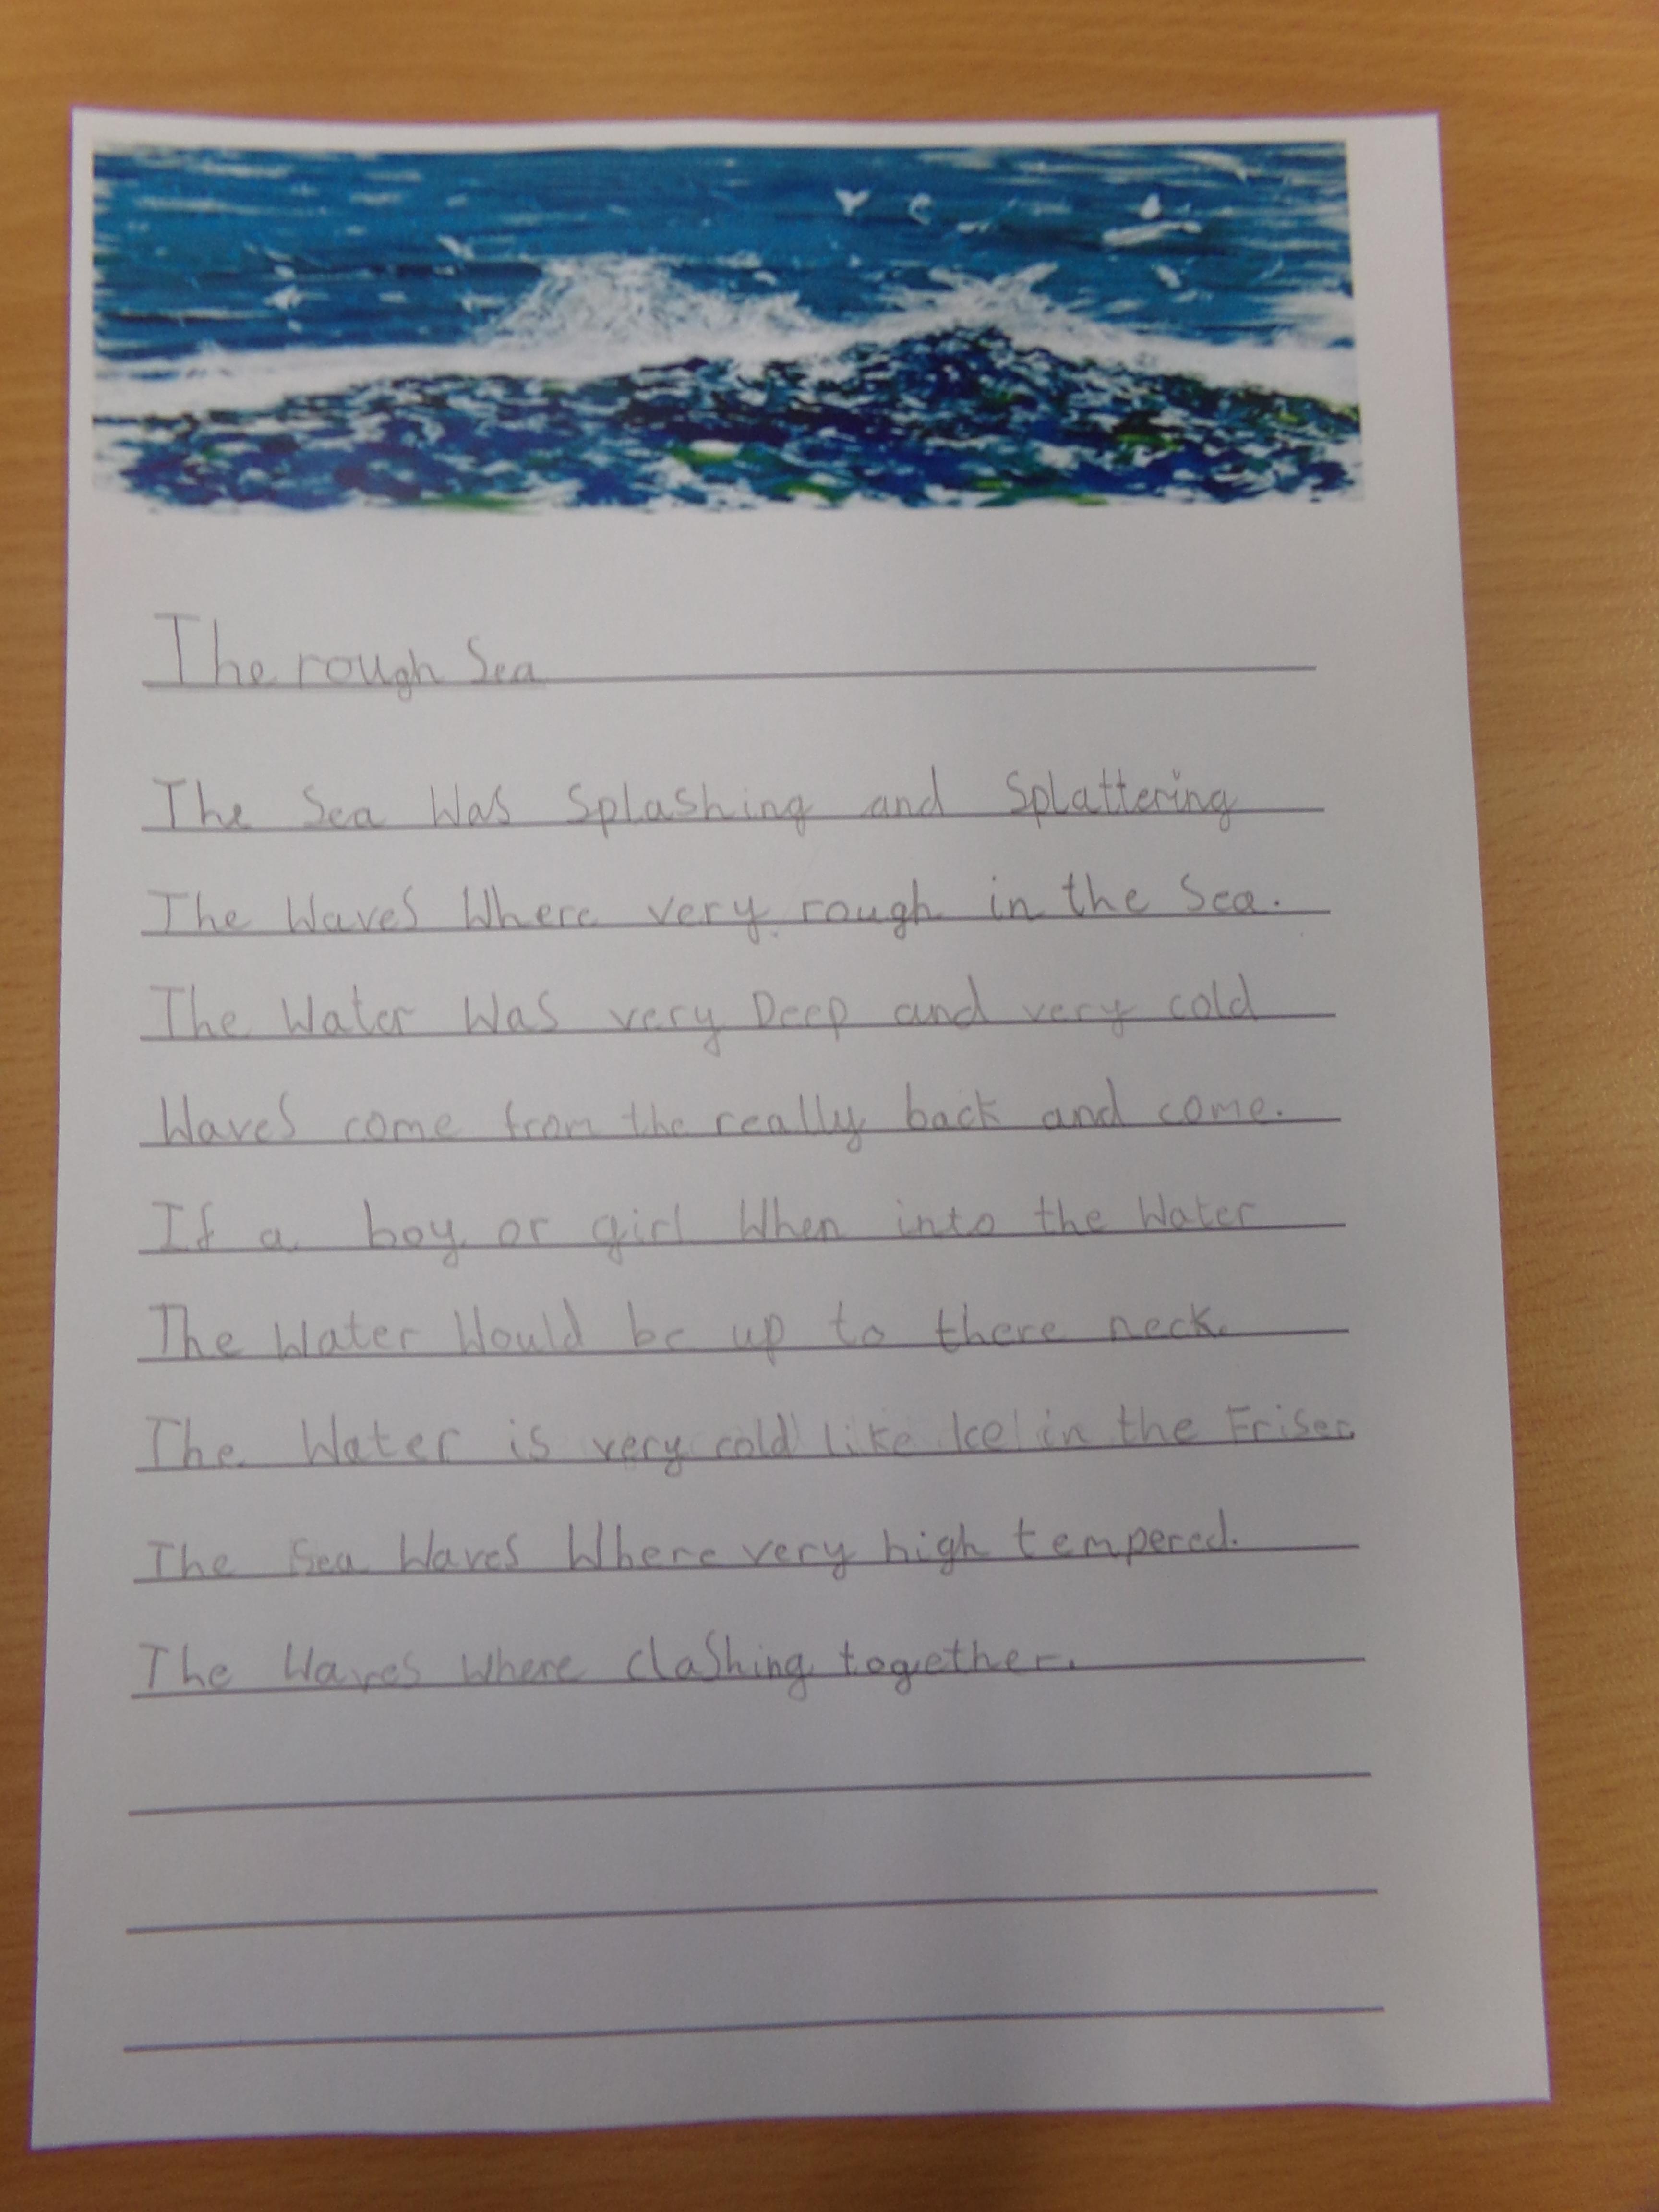 The rough Sea
The Sea Was Splashing and Splattering
The Waves Where very rough in the Sea.
The Water Was very Deep and very cold
Waves come from the really back and come.
If a boy or girl When into the Water
The Water Would be up to there neck.
The Water is very cold like Ice in the Friser.
The Sea Waves Where very high tempered.
The Waves Where clashing together.